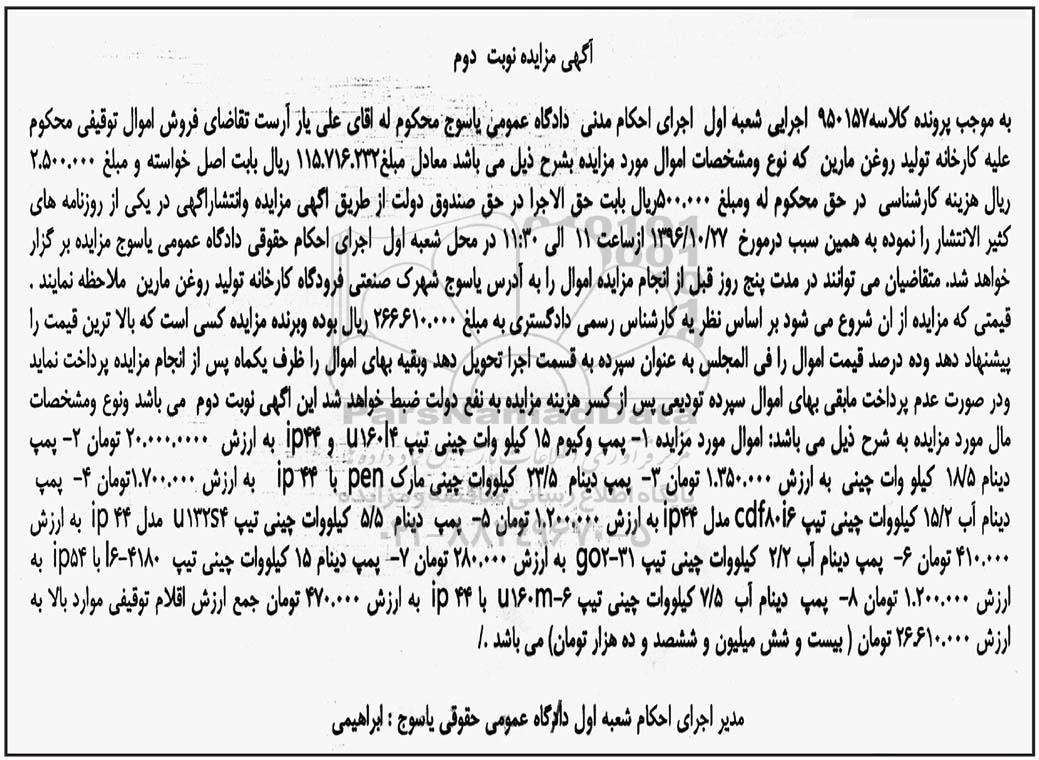 آگهی مزایده نوبت دوم
به موجب پرونده کلاسه۹۵۰۱۵۷ اجرایی شعبه اول اجرای احکام مدنی دادگاه عمومی یاسوج محکوم له اقای علی یار آرست تقاضای فروش اموال توقیفی محکوم
علیه کارخانه تولید روغن مارین که نوع ومشخصات اموال مورد مزایده بشرح ذیل می باشد معادل مبلغ۱۱۵.۷۱۶.۲۳۲ ریال بابت اصل خواسته و مبلغ ۲.۵۰۰.۰۰۰
ریال هزینه کارشناسی در حق محکوم له ومبلغ ۵۰۰.۰۰۰ریال بابت حق الاجرا در حق صندوق دولت از طریق اگهی مزایده وانتشاراگهی در یکی از روزنامه های
کثیر الانتشار را نموده به همین سبب درمورخ ۱۳۹۶/۱۰/۲۷ ازساعت ۱۱ الی ۱۱:۳۰ در محل شعبه اول اجرای احکام حقوقی دادگاه عمومی یاسوج مزایده بر گزار
خواهد شد. متقاضیان می توانند در مدت پنج روز قبل از انجام مزایده اموال را به آدرس یاسوج شهرک صنعتی فرودگاه کارخانه تولید روغن مارین ملاحظه نمایند .
قیمتی که مزایده از ان شروع می شود بر اساس نظر یه کارشناس رسمی دادگستری به مبلغ ۲۶۶.۶۱۰.۰۰۰ ریال بوده وبرنده مزایده کسی است که بالا ترین قیمت را
پیشنهاد دهد وده درصد قیمت اموال را فی المجلس به عنوان سپرده به قسمت اجرا تحویل دهد وبقیه بهای اموال را ظرف یکماه پس از انجام مزایده پرداخت نماید
ودر صورت عدم پرداخت مابقی بهای اموال سپرده تودیعی پس از کسر هزینه مزایده به نفع دولت ضبط خواهد شد این اگهی نوبت دوم می باشد ونوع ومشخصات
مال مورد مزایده به شرح ذیل می باشد: اموال مورد مزایده ۱- پمپ وکیوم ۱۵ کیلو وات چینی تیپ u۱۶۰l۴ و ip۴۴ به ارزش ۲۰.۰۰۰.۰۰۰۰ تومان ۲- پمپ
دینام ۱۸/۵ کیلو وات چینی به ارزش ۱.۳۵۰.۰۰۰ تومان ۳- پمپ دینام ۲۳/۵ کیلووات چینی مارک pen با ip ۴۴ به ارزش ۱.۷۰۰.۰۰۰تومان ۴- پمپ
دینام آب ۱۵/۲ کیلووات چینی تیپ cdf۸۰i۶ مدل ip۴۴ به ارزش ۱.۲۰۰.۰۰۰ تومان ۵- پمپ دینام ۵/۵ کیلووات چینی تیپ u۱۳۲s۴ مدل ip ۴۴ به ارزش
۴۱۰.۰۰۰ تومان ۶- پمپ دینام آب ۲/۲ کیلووات چینی تیپ go۲-۳۱ به ارزش ۲۸۰.۰۰۰ تومان ۷- پمپ دینام ۱۵ کیلووات چینی تیپ l۶-۴۱۸۰ با ip۵۴ به
ارزش ۱.۲۰۰.۰۰۰ تومان ۸- پمپ دینام آب ۷/۵ کیلووات چینی تیپ u۱۶۰m-۶ با ip ۴۴ به ارزش ۴۷۰.۰۰۰ تومان جمع ارزش اقلام توقیفی موارد بالا به
ارزش ۲۶.۶۱۰.۰۰۰ تومان ( بیست و شش میلیون و ششصد و ده هزار تومان) می باشد ./
مدیر اجرای احکام شعبه اول دادگاه عمومی حقوقی یاسوج : ابراهیمی
ParsNamadData